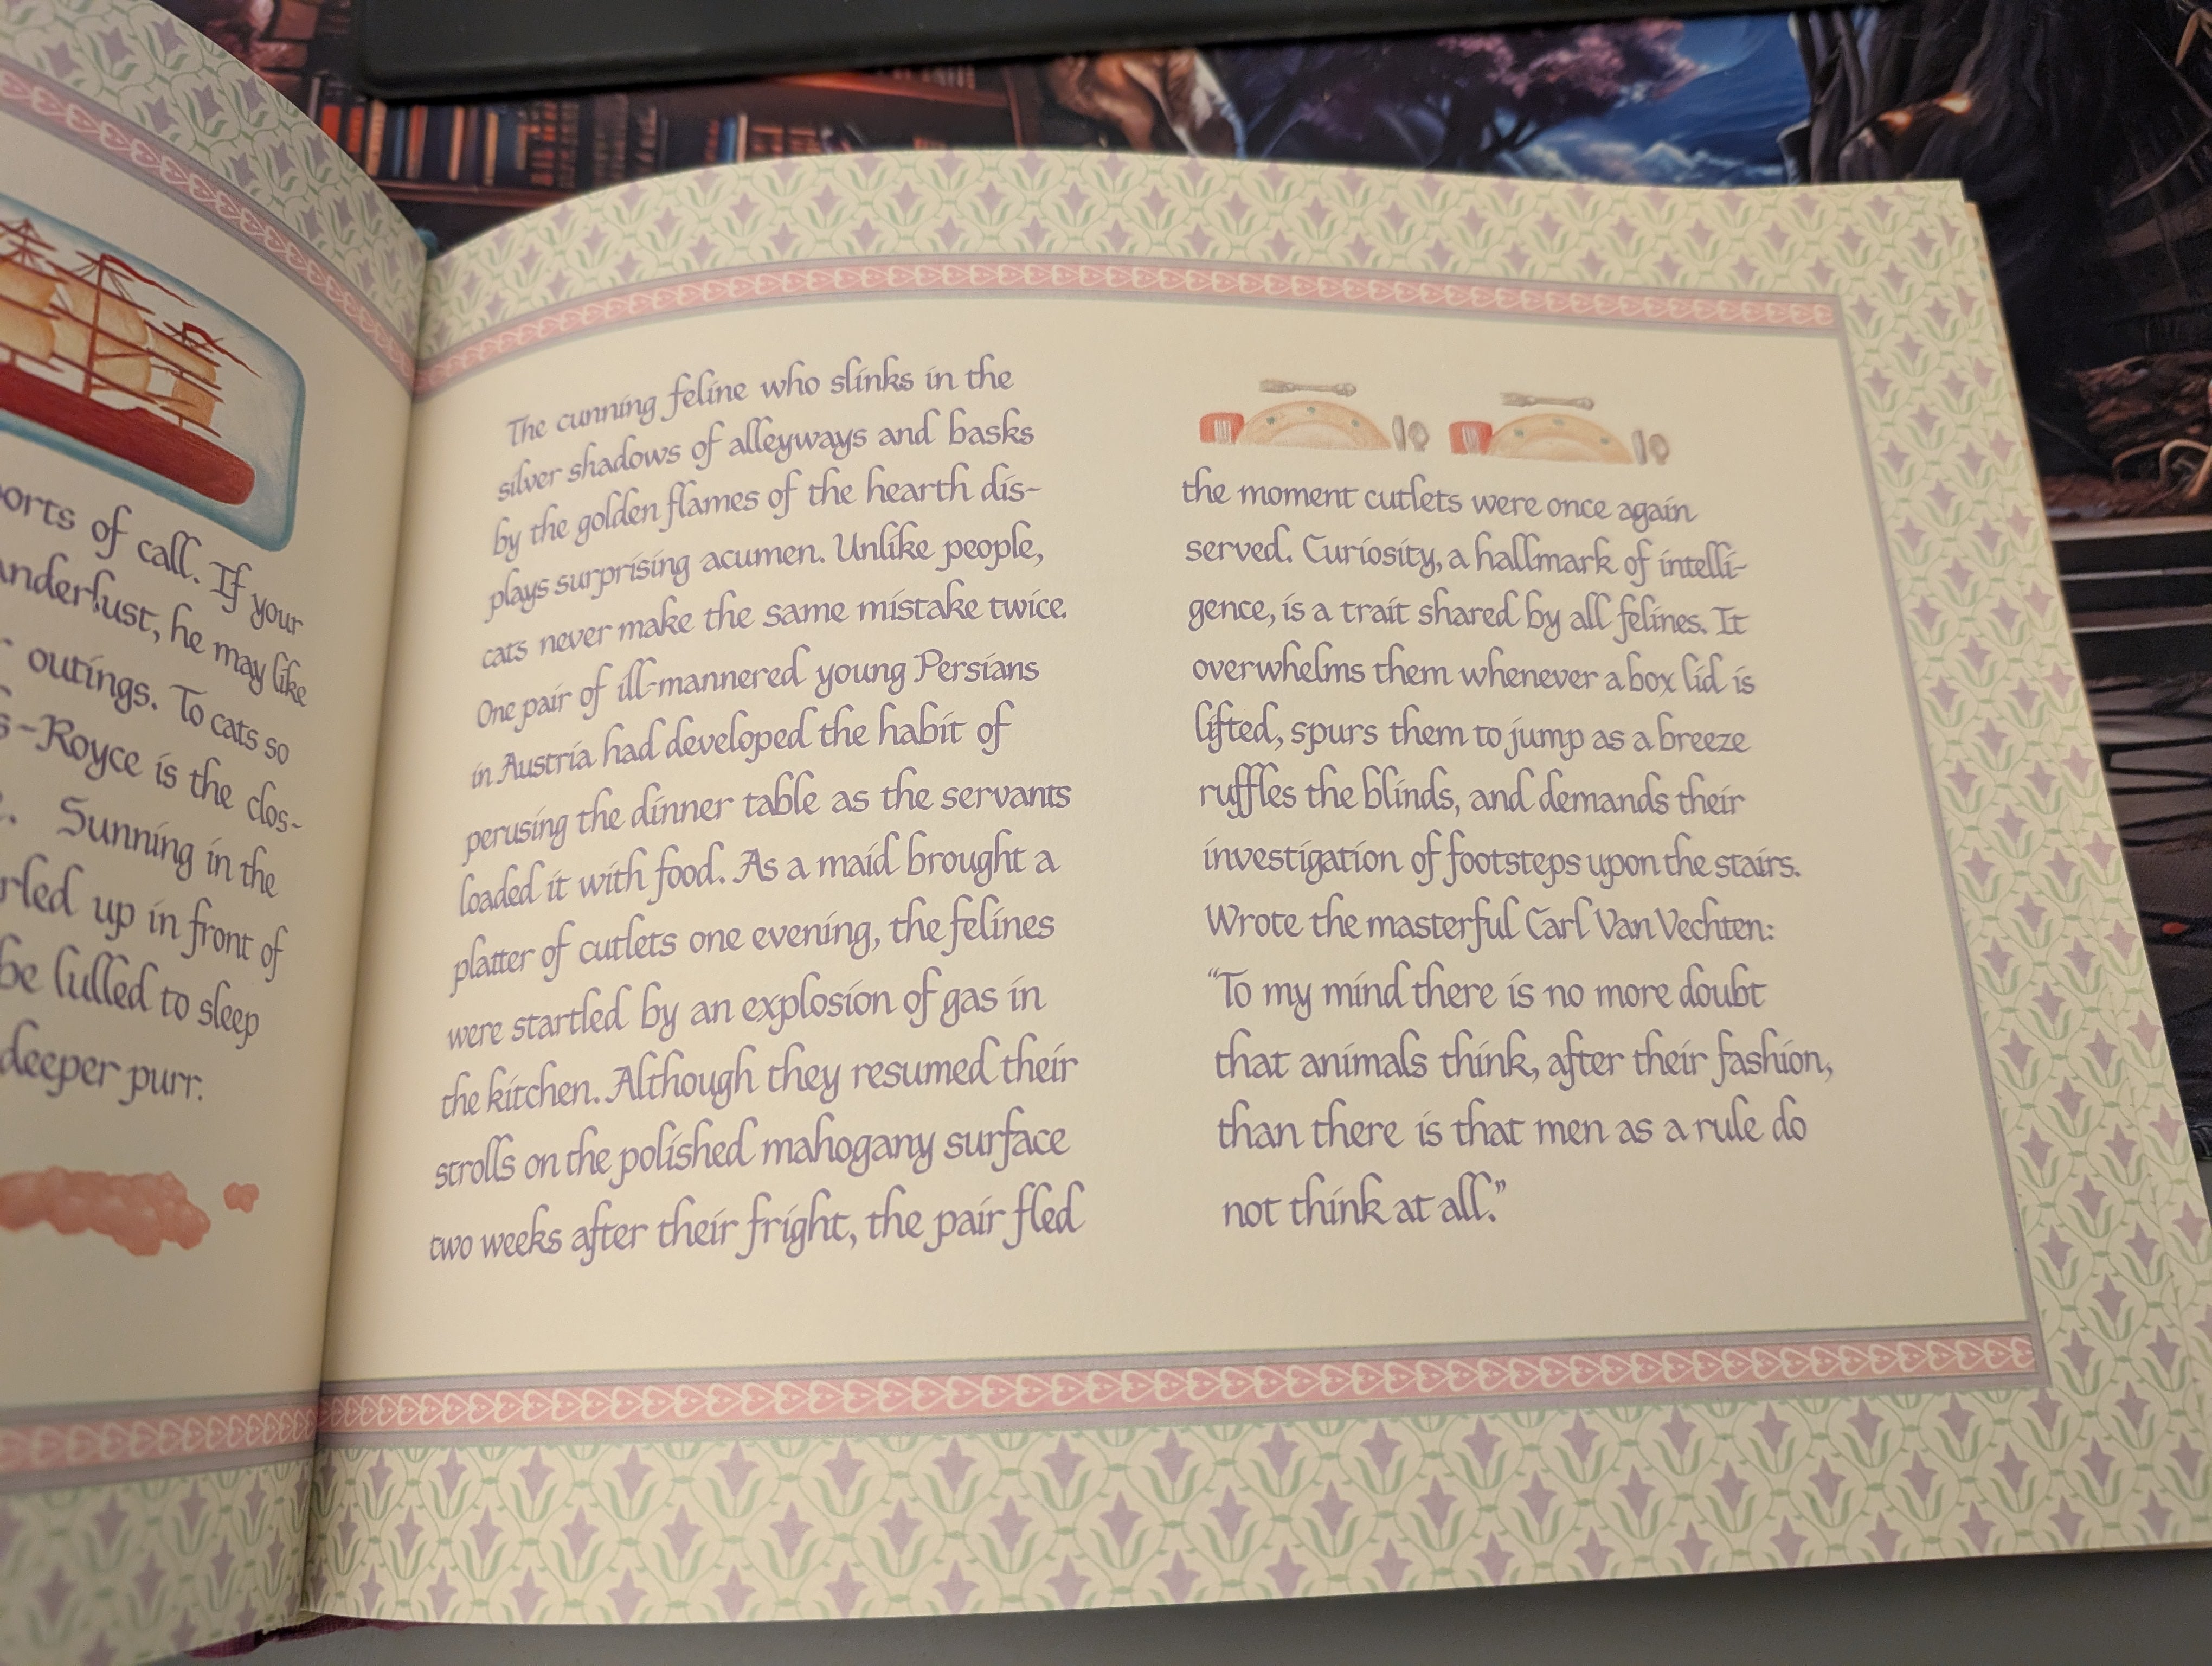 orts of call. If your
anderlust, he may like
outings. To cats so
s-Royce is the clos-
Sunning in the
rled up in front of
be lulled to sleep
deeper purr.
The cunning feline who slinks in the
silver shadows of alleyways and basks
by the golden flames of the hearth dis-
plays surprising acumen. Unlike people,
cats never make the same mistake twice.
One pair of ill-mannered young Persians
in Austria had developed the habit of
perusing the dinner table as the servants
loaded it with food. As a maid brought a
platter of cutlets one evening, the felines
were startled by an explosion of gas in
the kitchen. Although they resumed their
strolls on the polished mahogany surface
two weeks after their fright, the pair fled
the moment cutlets were once again
served. Curiosity, a hallmark of intelli-
gence, is a trait shared by all felines. It
overwhelms them whenever a box lid is
lifted, spurs them to jump as a breeze
ruffles the blinds, and demands their
investigation of footsteps upon the stairs.
Wrote the masterful Carl Van Vechten:
“To my mind there is no more doubt
that animals think, after their fashion,
than there is that men as a rule do
not think at all.”